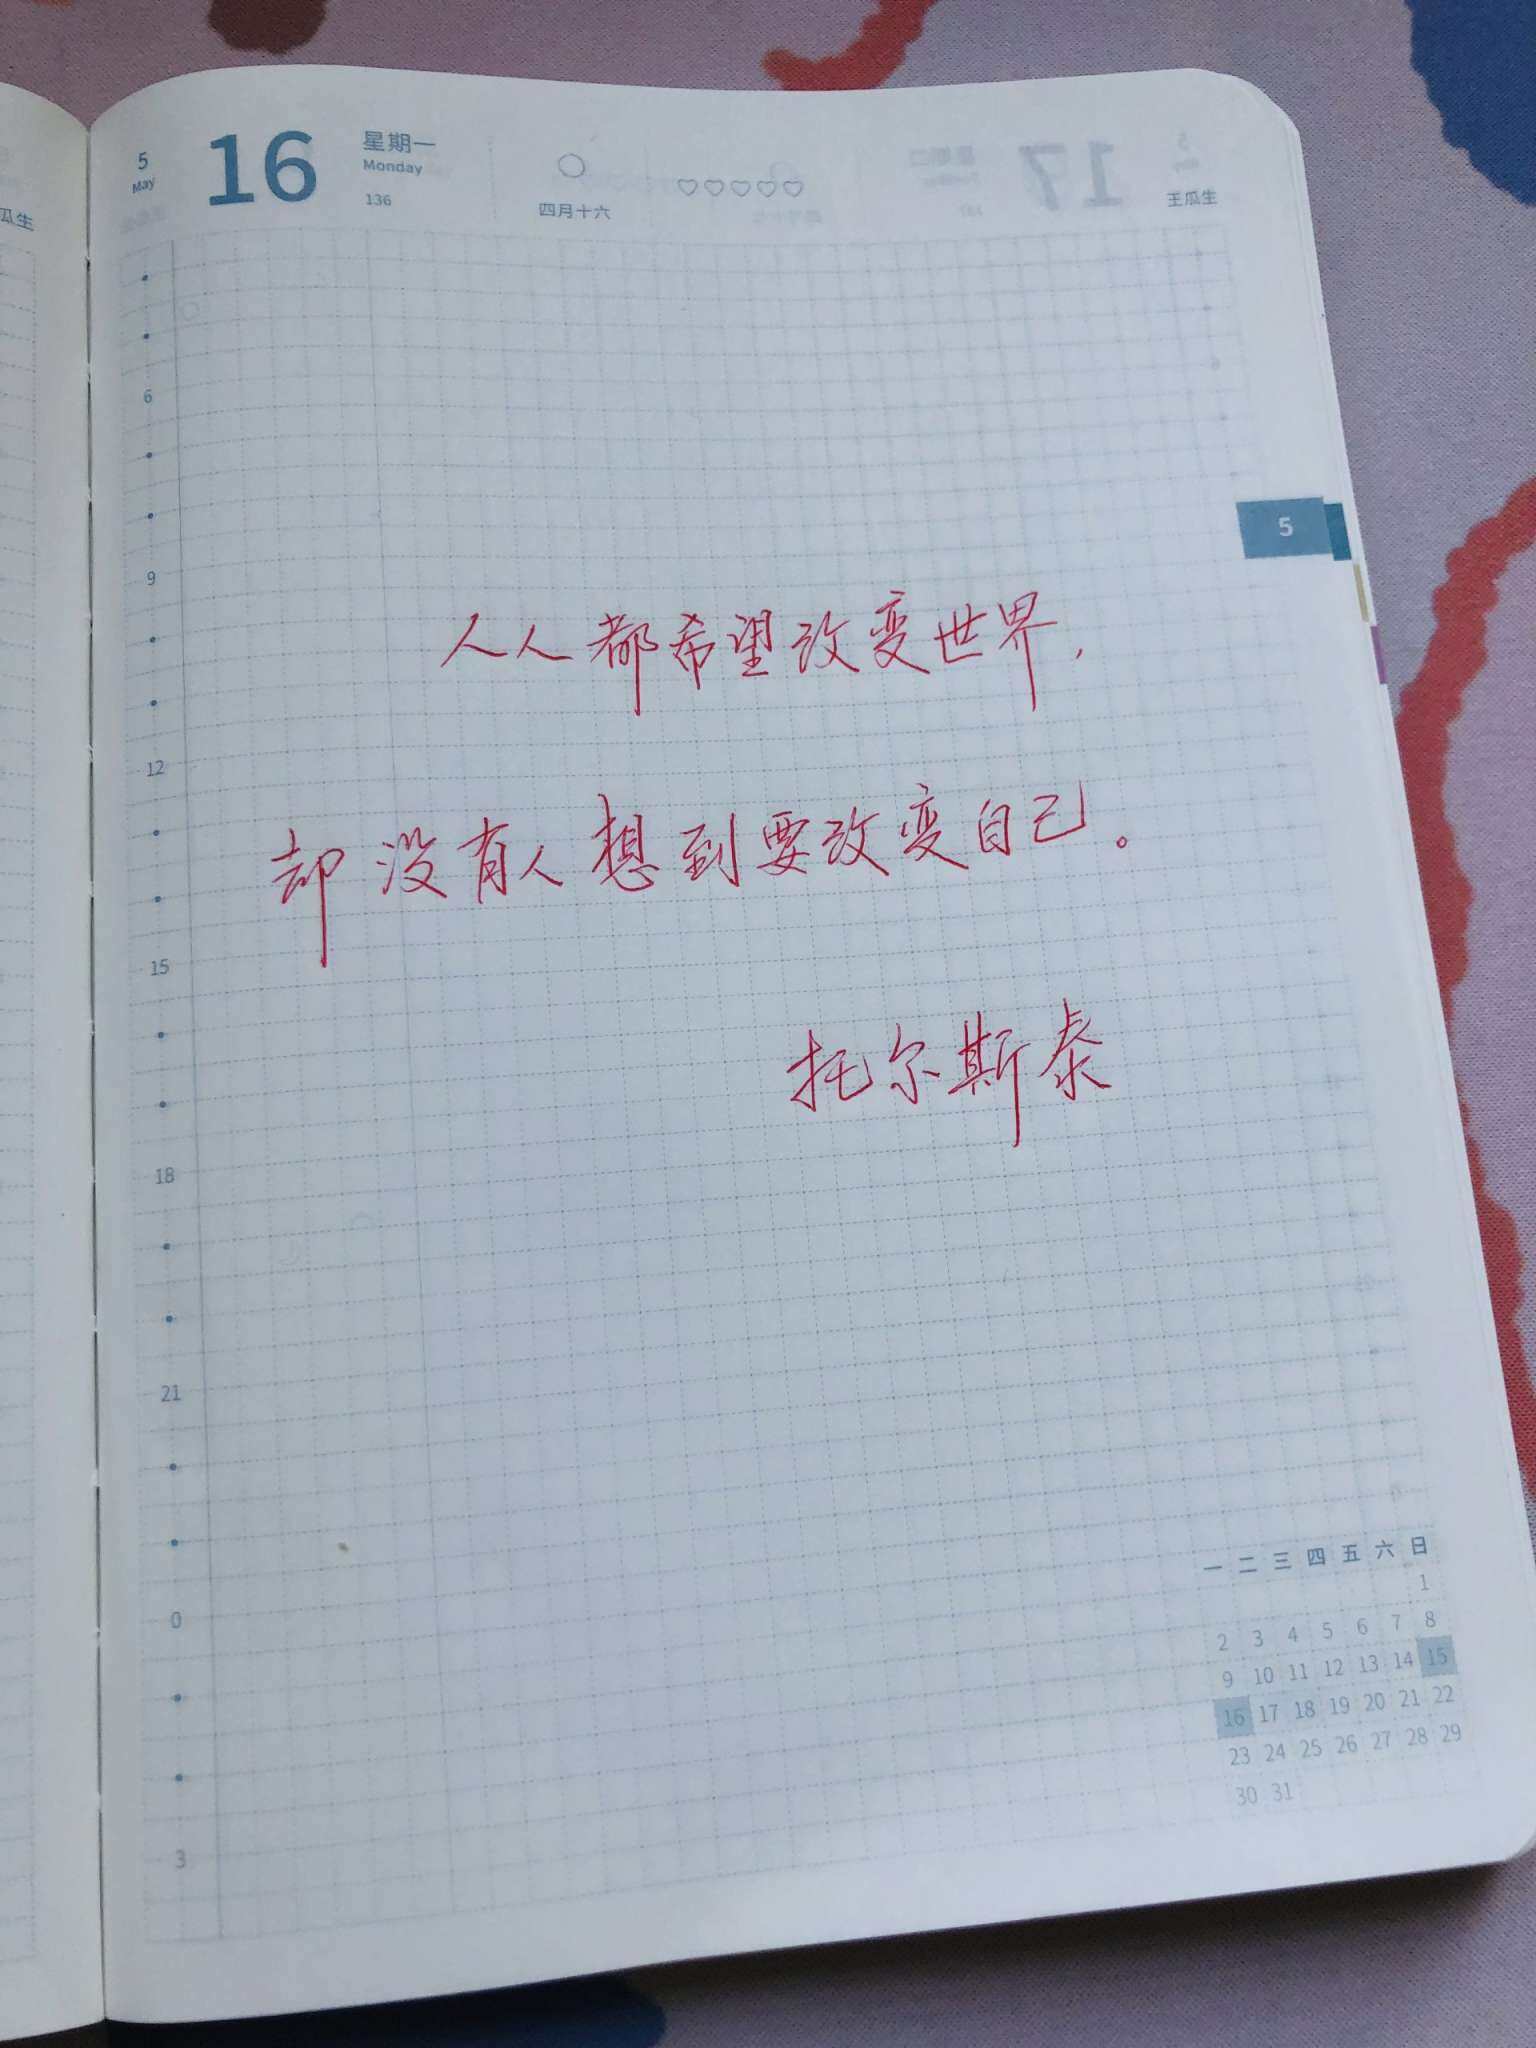 瓜生
5 May
16
星期一
Monday
136
四月十六
王瓜生
6
5
9
人人都希望改变世界，
12
却没有人想到要改变自己。
15
托尔斯泰
18
21
0
3
一 二 三 四 五 六 日
1
2 3 4 5 6 7 8
9 10 11 12 13 14 15
16 17 18 19 20 21 22
23 24 25 26 27 28 29
30 31